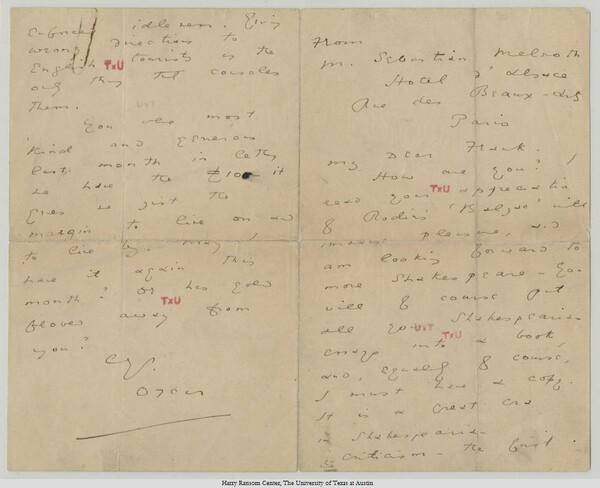 From
Mr. Sebastian Melmoth
Hotel d'Alsace
Rue des Beaux-Arts
Paris
My dear Frank.
How are you? I
read your appreciation
of Rodin's 'Balzac' with
immense pleasure, and
am looking forward to
more Shakespeare - you
will of course put
all your Shakespearian
essays into a book,
and, equally of course,
I must have a copy.
It is a great era
in Shakespearian
criticism - the first
enforced idleness. Giving
wrong directions to
English tourists is the
only thing that consoles
them.
You were most
kind and generous
last month in letting
me have the £10 - it
gives me just the
margin to live on and
to live by. May I
have it again this
month? or has gold
flown away from
you?
Ever
Oscar
TxU
TxU
TxU
UxT
TxU
Harry Ransom Center, The University of Texas at Austin